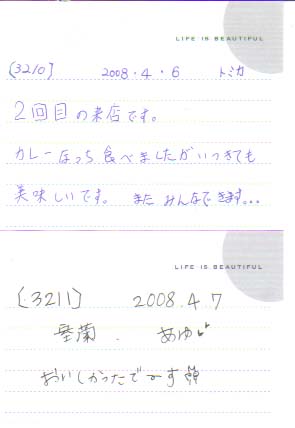 LIFE IS BEAUTIFUL
[3210] 2008.4.6 トミカ
2回目の来店です。
カレーなっち食べましたがいつきても
美味しいです。またみんなできます...
LIFE IS BEAUTIFUL
[3211] 2008.4.7
室蘭. あゆ
おいしかったでーす